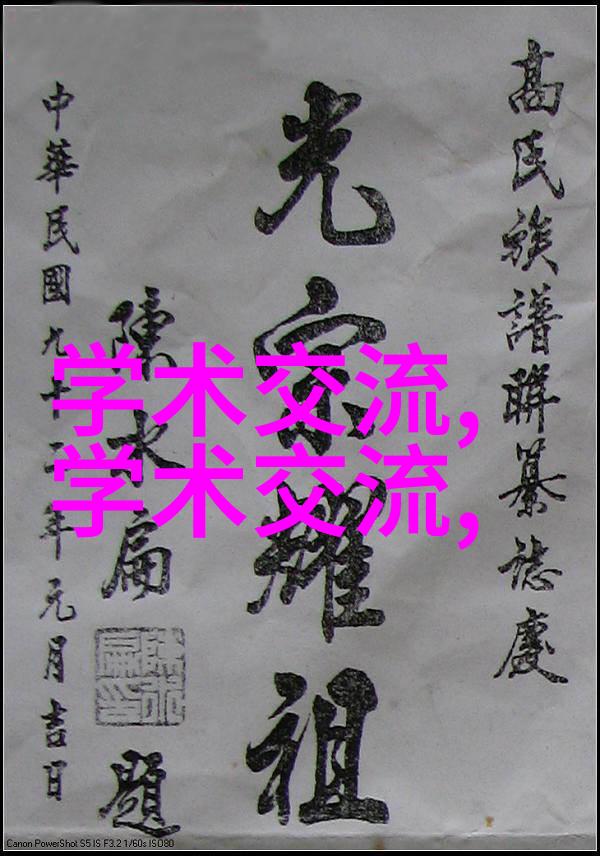 高氏族譜聯纂誌慶
光宗耀祖
陳水扁
陳水扁印
題
中華民國九十年元月吉日
学术交流,
学术交流,
Canon PowerShot S5 IS F3.2 1/60s ISO80